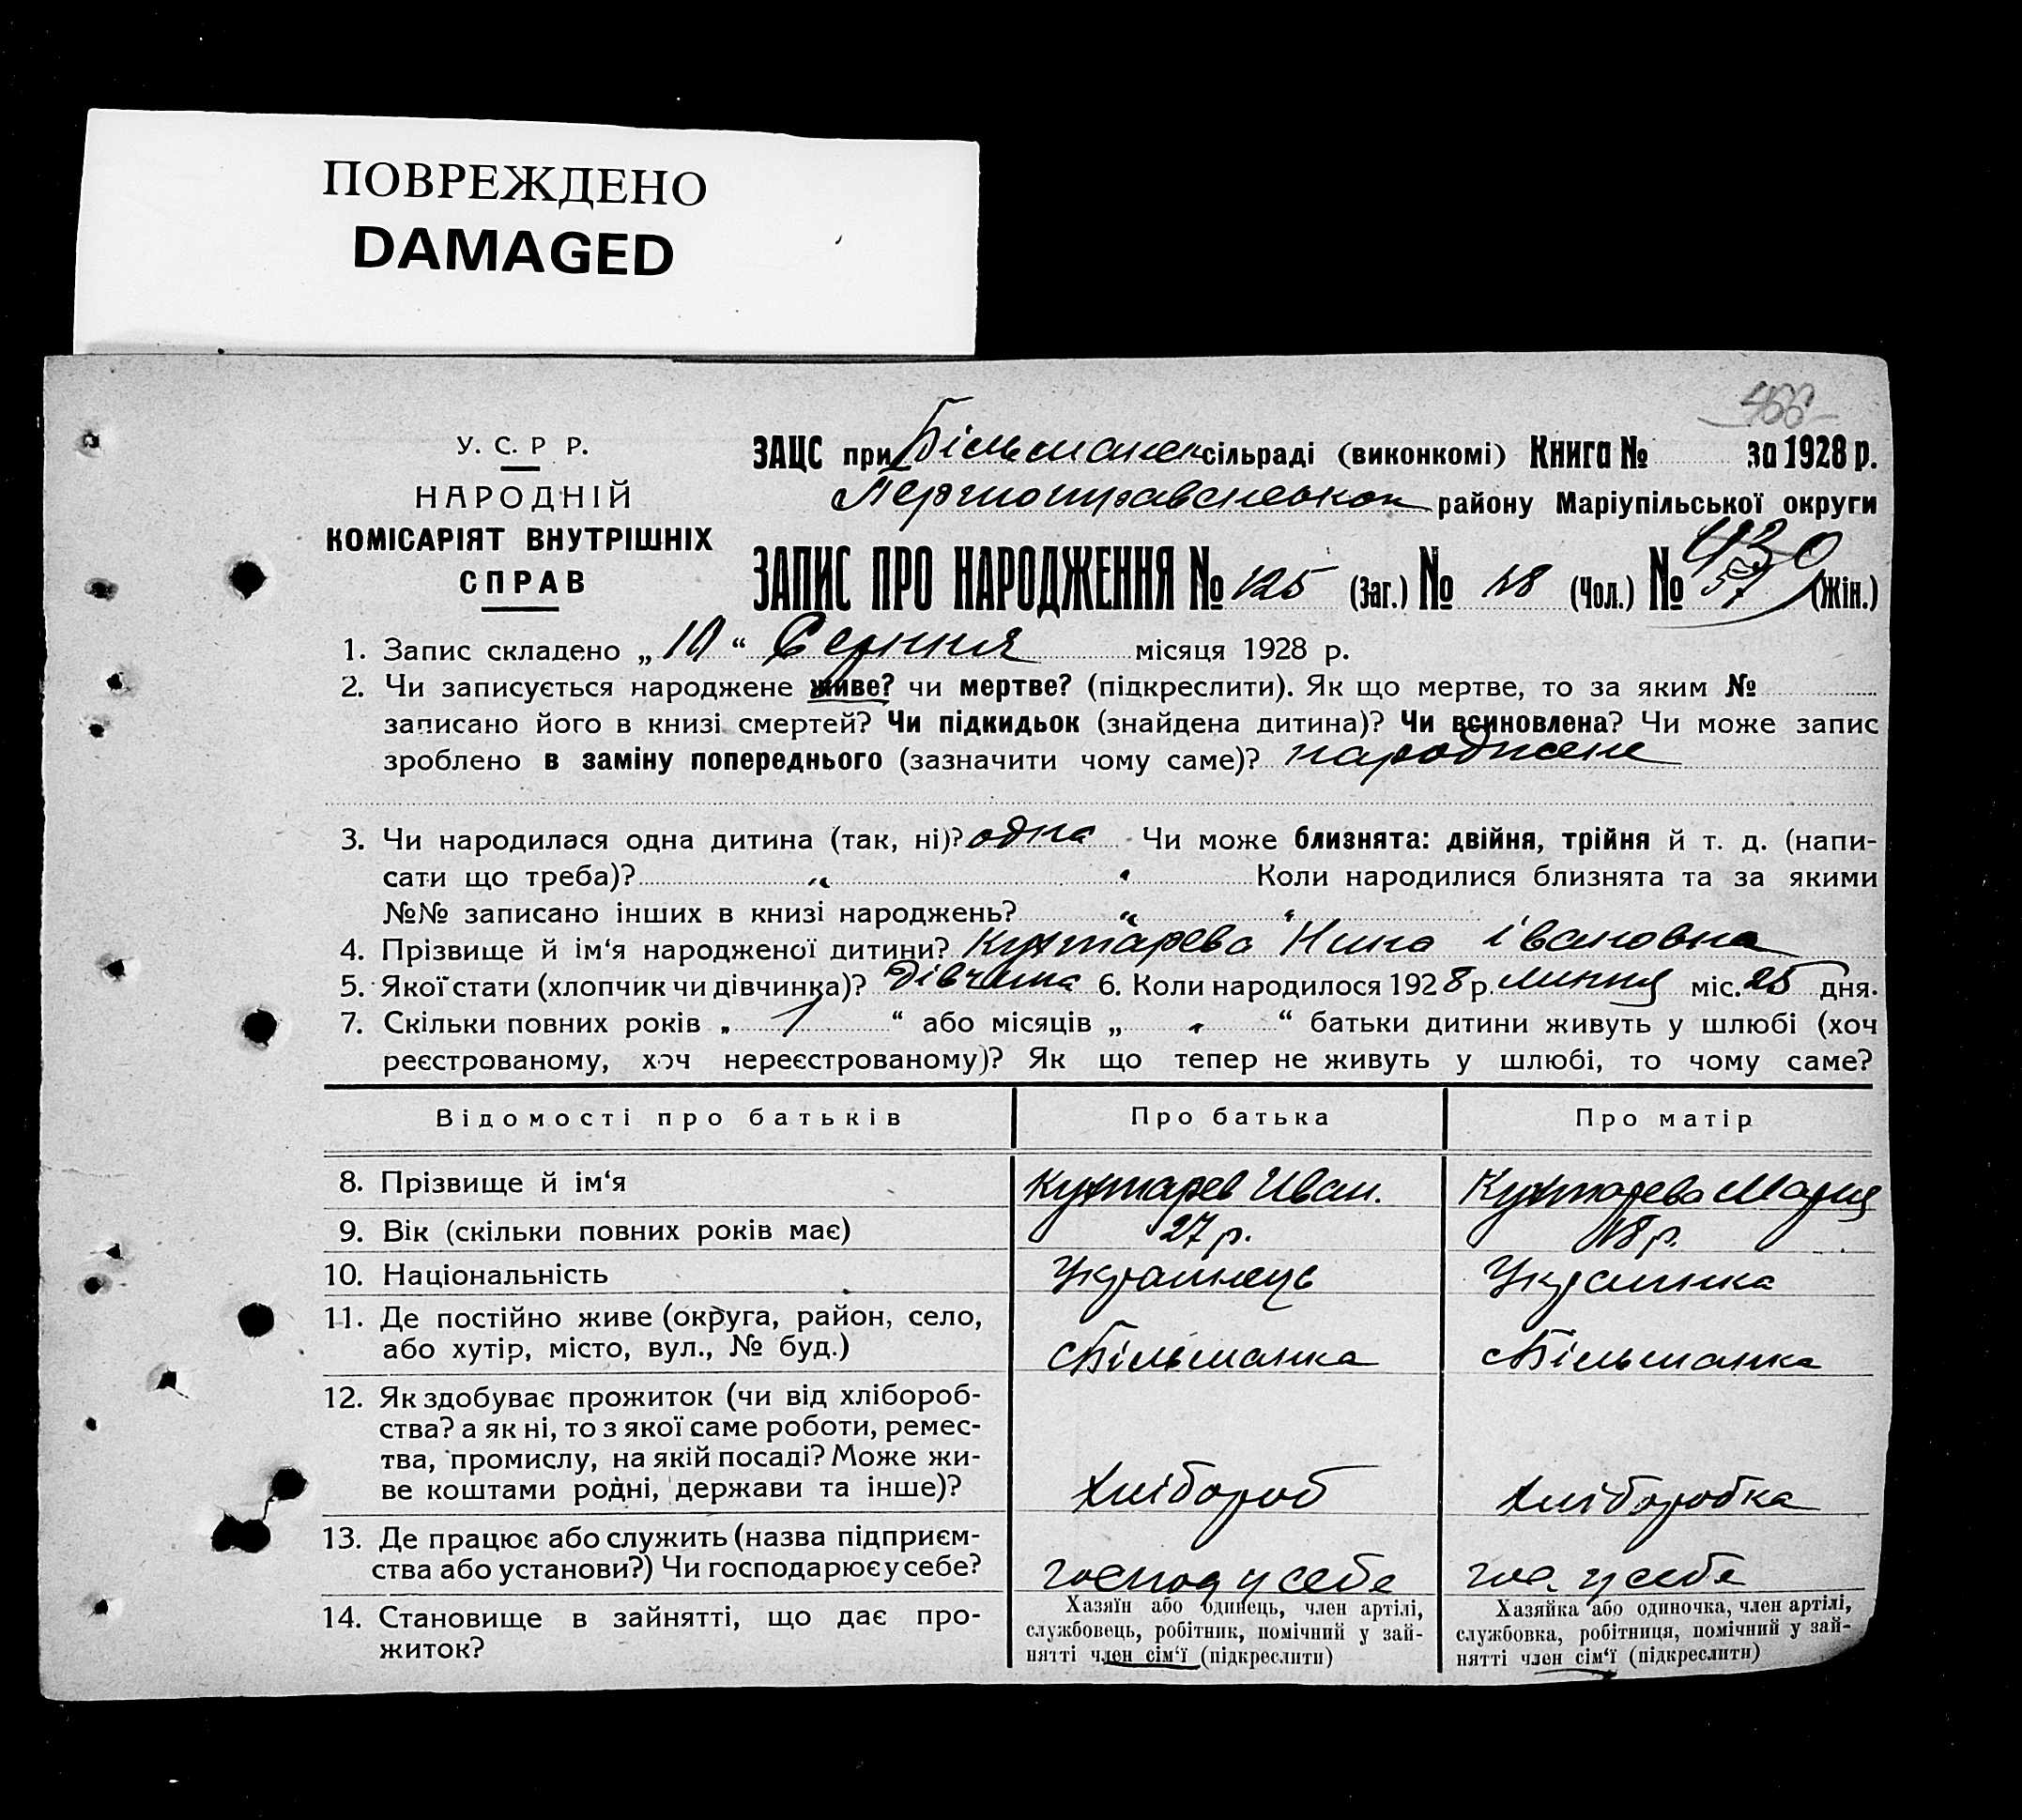 ПОВРЕЖДЕНО
DAMAGED
466
У. С. Р Р.
НАРОДНІЙ
КОМІСАРІЯТ ВНУТРІШНІХ
СПРАВ
ЗАЦС при Більманск сільраді (виконкомі) Книга № за 1928 р.
Першотравенського району Маріупільської округи
430
ЗАПИС ПРО НАРОДЖЕННЯ № 125 (Заг.) № (Чол.) № 57 (Жін.)
1. Запис складено „10“ Серпня місяця 1928 р.
2. Чи записується народжене живе? чи мертве? (підкреслити). Як що мертве, то за яким №
записано його в книзі смертей? Чи підкидьок (знайдена дитина)? Чи всиновлена? Чи може запис
зроблено в заміну попереднього (зазначити чому саме)? народжене
3. Чи народилася одна дитина (так, ні)? одна Чи може близнята: двійня, трійня й т. д. (напи-
сати що треба)? „ “ Коли народилися близнята та за якими
№№ записано інших в книзі народжень? „ “
4. Прізвище й ім‘я народженої дитини? Кухтарева Нина Івановна
5. Якої стати (хлопчик чи дівчинка)? Дівчина 6. Коли народилося 1928 р. липня міс. 25 дня.
7. Скільки повних років „ 1 “ або місяців „ “ батьки дитини живуть у шлюбі (хоч
реєстрованому, хоч нереєстрованому)? Як що тепер не живуть у шлюбі, то чому саме?
Відомості про батьків Про батька Про матір
8. Прізвище й ім‘я Кухтарев Иван. Кухтарева Мария
9. Вік (скільки повних років має) 27 р. 18 р.
10. Національність Українець Українка
11. Де постійно живе (округа, район, село,
або хутір, місто, вул., № буд.) с Більманка с Більманка
12. Як здобуває прожиток (чи від хлібороб-
ства? а як ні, то з якої саме роботи, ремес-
тва, промислу, на якій посаді? Може жи-
ве коштами родні, держави та інше)? Хлібороб Хліборобка
13. Де працює або служить (назва підприєм-
ства або установи?) Чи господарює у себе? господ у себе гос. у себе
14. Становище в зайнятті, що дає про-
житок?
Хазяїн або одинець, член артілі,
службовець, робітник, помічний у зай-
нятті член сім‘ї (підкреслити)
Хазяйка або одиночка, член артілі,
службовка, робітниця, помічний у зай-
нятті член сім‘ї (підкреслити)